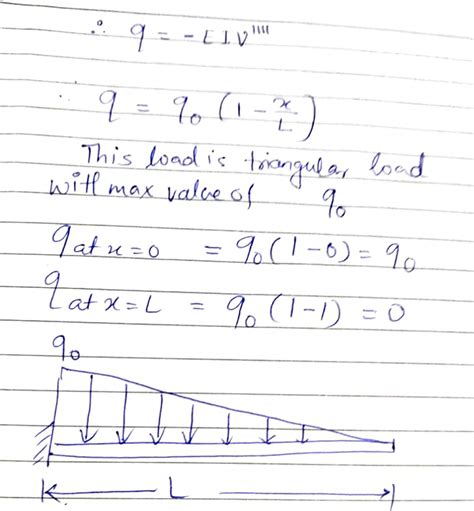 ∴ q = -EIV''''
∴ q = q₀ (1 - x/L)
This load is triangular load
with max value of q₀
q at x=0 = q₀ (1-0) = q₀
q at x=L = q₀ (1-1) = 0
q₀
L